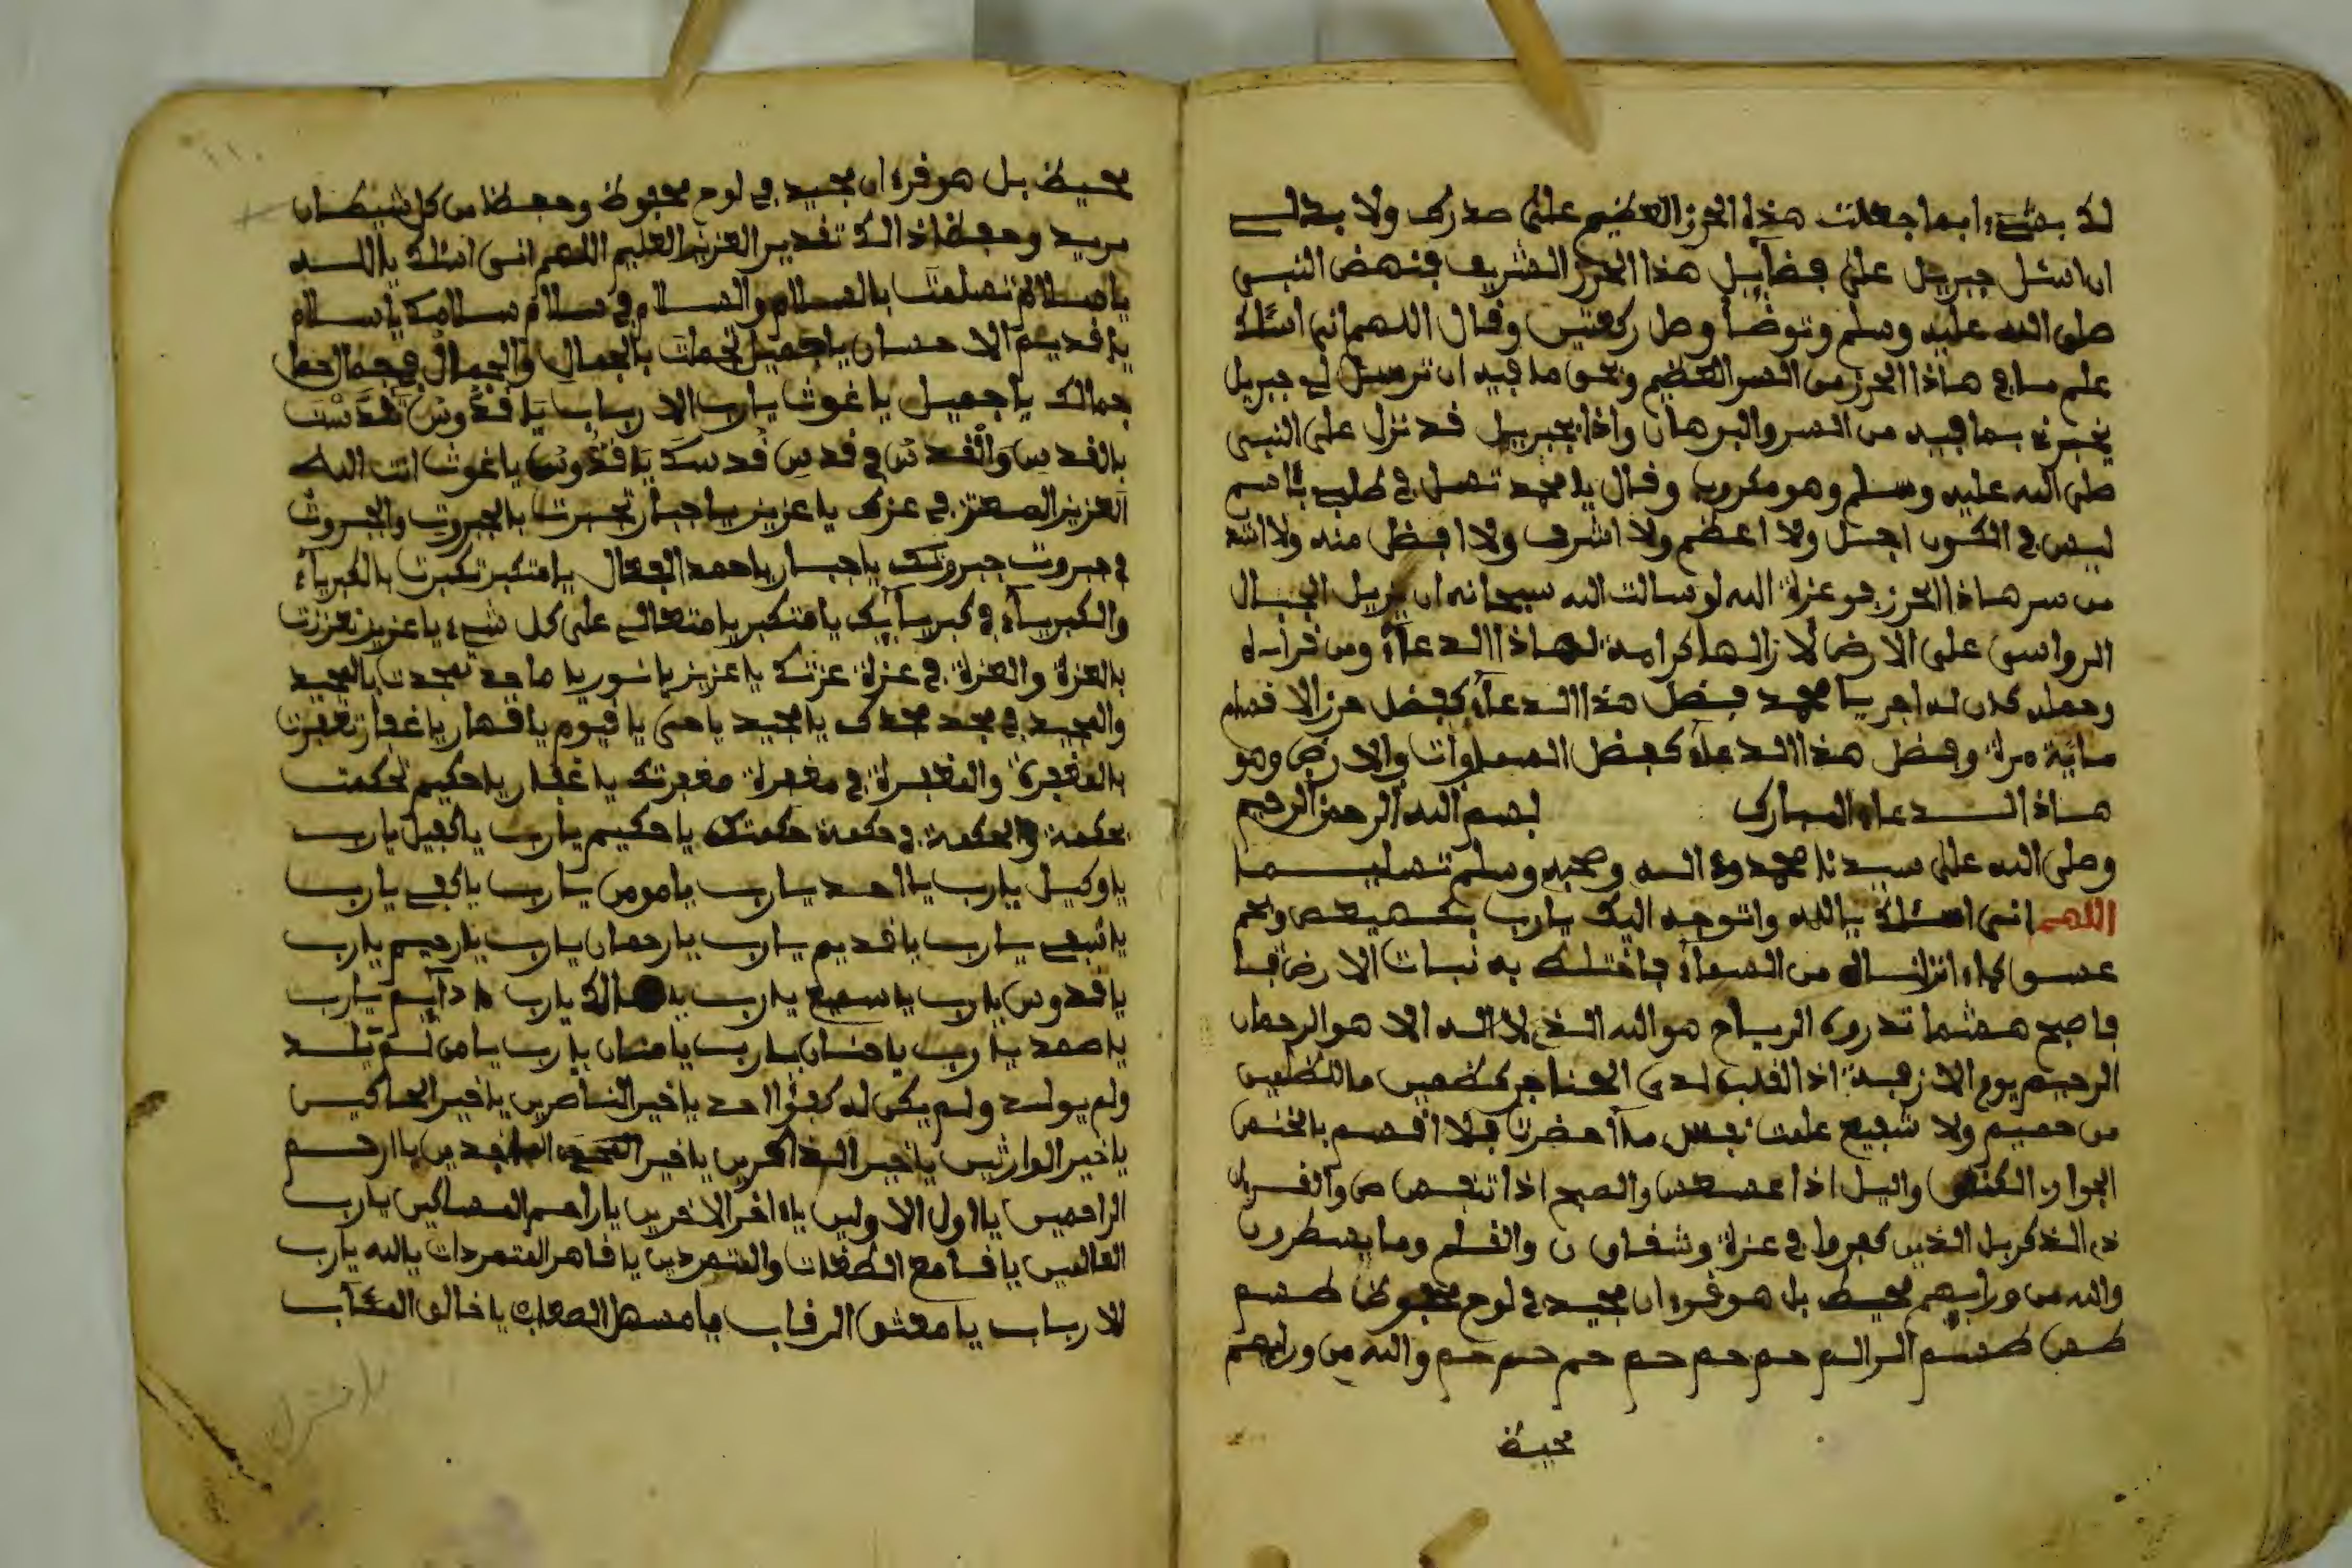 لك بشيء ابما جعلت هذا الحرز العظيم على صدرك ولا بد لي
ان اسئل جبريل على فضآيل هذا الحرز الشريف فنهض النبي
صلى الله عليه وسلم وتوضأ وصل ركعتين وقال اللهم اني اسئلك
علم ما في هاذا الحرز من السر العظيم وبحق ما فيه ان ترسل لي جبريل
يخبرني بما فيه من السر والبرهان واذا بجبريل قد نزل على النبي
صلى الله عليه وسلم وهو مكروب وقال يا محمد تسئل في طلب
ليس في الكون اجل ولا اعظم ولا اشرف ولا افضل منه ولا
من سر هاذا الحرز فوعزة الله لو سالت الله سبحانه ان يزيل الجبال
الرواسي على الارض لازالها كرامة لهاذا الدعآء ومن قراءه
وحمله كان له اجر يا محمد فضل هذا الدعآء كفضل حرز الاقسام
ماية مرة وفضل هذا الدعآء كفضل السماوات والارض وهو
هاذا الدعاء المبارك بسم الله الرحمن الرحيم
وصلى الله على سيدنا محمد وءاله وصحبه وسلم تسليما
اللهم اني اسئلك يا الله واتوجه اليك يارب بكهيعص وحم
عسق كماء انزلناه من السمآء فاختلط به نبات الارض
فاصبح هشيما تذروه الرياح هو الله الذي لا اله الا هو الرحمان
الرحيم يوم الازفة اذ القلب لدى الحناجر كظمين ما للظلمين
من حميم ولا شفيع علمت نفس مآ احضرت فلا اقسم بالخنس
الجوار الكنس واليل اذا عسعس والصبح اذا تنفس ص والقرءان
ذي الذكر بل الذين كفروا في عزة وشقاق ن والقلم وما يسطرون
والله من ورايهم محيط بل هو قرءان مجيد في لوح محفوظ طسم
طس طسم الر الم حم حم حم حم حم حم حم والله من ورايهم
محيط
محيط بل هو قرءان مجيد في لوح محفوظ وحفظا من كل شيطان
مريد وحفظا ذالك تقدير العزيز العليم اللهم اني اسئلك يا الله
يا سلام تسلمت بالسلام والسلام في سلام سلامك يا سلام
يا قديم الاحسان يا جميل تجملت بالجمال والجمال في جمال
جمالك يا جميل يا غوث يا رب الارباب يا قدوس تقدست
بالقدس والقدس في قدس قدسك يا قدوس يا غوث انت الله
العزيز المعتز في عزك يا عزيز يا جبار تجبرت بالجبروت والجبروت
في جبروت جبروتك يا جبار يا حمد الفعال يا متكبر تكبرت بالكبريآء
والكبريآء في كبريآيك يا متكبر يا متعالي على كل شيء يا عزيز تعززت
بالعزة والعزة في عزة عزتك يا عزيز يا نور يا ماجد تمجدت بالمجيد
والمجيد في مجد مجدك يا مجيد يا حي يا قيوم يا قهار يا غفار تغفرت
بالمغفرة والمغفرة في مغفرة مغفرتك يا غفار يا حكيم تحكمت
بحكمة والحكمة في حكمة حكمتك يا حكيم يارب يا كفيل يارب
يا وكيل يارب يا احد يارب يا مومن يارب يا كفي يارب
يا شفي يارب يا قديم يارب يا رحمان يارب يا رحيم يارب
يا قدوس يارب يا سميع يارب يا مالك يارب يا دآيم يارب
يا صمد يارب يا حنان يارب يا منان يارب يا من لم يلد
ولم يولد ولم يكن له كفؤا احد يا خير الناصرين يا خير الحاكمين
يا خير الوارثين يا خير الذاكرين يا خير الساجدين يا ارحم
الراحمين يا اول الاولين يا ءاخر الاخرين يا راحم المساكين يارب
العالمين يا قامع الطغات والمتمردين يا قاهر المتمردات يا الله يارب
الارباب يا معتق الرقاب يا مسهل الصعاب يا خالق